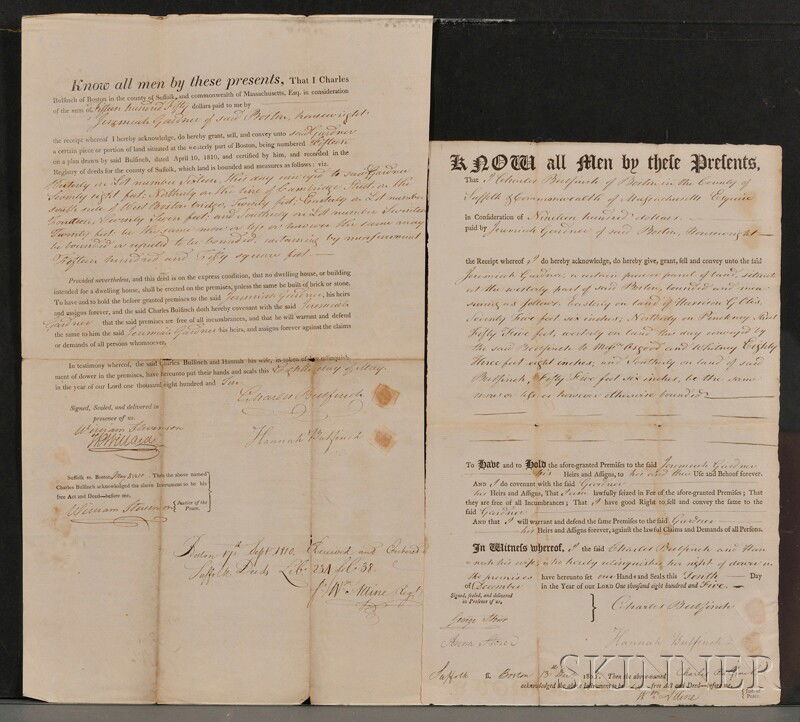 Know all men by these presents, That I Charles
Bulfinch of Boston in the county of Suffolk, and commonwealth of Massachusetts, Esq. in consideration
of the sum of Fifteen hundred Fifty dollars paid to me by
Jeremiah Gardner of said Boston, housewright
the receipt whereof I hereby acknowledge, do hereby grant, sell, and convey unto said Gardner
a certain piece or portion of land situated at the westerly part of Boston, being numbered Fifteen
on a plan drawn by said Bulfinch, dated April 10, 1810, and certified by him, and recorded in the
Registry of deeds for the county of Suffolk, which land is bounded and measures as follows: viz.
Westerly on Lot number Sixteen this day conveyed to said Gardner
Seventy eight feet; Northerly on the line of Cambridge Street on the
south side of West Boston bridge, Twenty feet; Easterly on Lot number
Fourteen Seventy Seven feet; and Southerly on Lot number
Twenty feet be the same more or less or however the same may
be bounded or reputed to be bounded, containing by measurement
Fifteen hundred and Fifty square feet
Provided nevertheless, and this deed is on the express condition, that no dwelling house, or building
intended for a dwelling house, shall be erected on the premises, unless the same be built of brick or stone.
To have and to hold the before granted premises to the said Jeremiah Gardner, his heirs
and assigns forever, and the said Charles Bulfinch doth hereby covenant with the said Jeremiah
Gardner that the said premises are free of all incumbrances, and that he will warrant and defend
the same to him the said Jeremiah Gardner his heirs, and assigns forever against the claims
or demands of all persons whomsoever,
In testimony whereof, the said Charles Bulfinch and Hannah his wife, in token of her relinquish
ment of dower in the premises, have hereunto put their hands and seals this Eighth day of May
in the year of our Lord one thousand eight hundred and Ten
Signed, Sealed, and delivered in
presence of us.
Charles Bulfinch
William Stevenson
Hannah Bulfinch
Suffolk ss. Boston, May 8 1810. Then the above named
Charles Bulfinch acknowledged the above Instrument to be his
free Act and Deed—before me,
William Stevenson Justice of the
Peace.
Boston 17th Sept 1810. Received and Entered
Suffolk Deeds Lib. 234 fol. 38
Wm Alline Regr
KNOW all Men by these Presents,
That I Charles Bulfinch of Boston in the County of
Suffolk & Commonwealth of Massachusetts Esquire
In Consideration of Nineteen hundred dollars
paid by Jeremiah Gardner of said Boston, Housewright
the Receipt whereof I do hereby acknowledge, do hereby give, grant, sell and convey unto the said
Jeremiah Gardner, a certain piece or parcel of land, situate
at the westerly part of said Boston, bounded and mea
suring as follows. Easterly on land of Thornton Ellis
Seventy Five feet six inches, Northerly on Pinckney Street
Fifty Five feet, westerly on land this day conveyed by
the said Bulfinch to Osgood and Whitney Eighty
Three feet eight inches, and Southerly on land of said
Bulfinch, Fifty Five feet six inches, be the same
more or less or however otherwise bounded
To Have and to Hold the afore-granted Premises to the said Jeremiah Gardner
his Heirs and Assigns, to his and their Use and Behoof forever.
AND I do covenant with the said Gardner
his Heirs and Assigns, That I am lawfully seized in Fee of the afore-granted Premises; That
they are free of all Incumbrances; That I have good Right to sell and convey the same to the
said Gardner
AND that I will warrant and defend the same Premises to the said Gardner
his Heirs and Assigns forever, against the lawful Claims and Demands of all Persons.
In Witness whereof, I the said Charles Bulfinch and Han
nah his wife, who hereby relinquishes her right of dower in
the premises have hereunto set our Hands and Seals this Tenth Day
of December in the Year of our Lord One thousand eight hundred and Five
Signed, sealed, and delivered
in Presence of us,
Charles Bulfinch
Hannah Bulfinch
Suffolk ss. Boston 13th Decr 1805. Then the above-named Charles Bulfinch
acknowledged the above Instrument to be his free Act and Deed—before me,
Wm Alline
Just. of
Peace.
SKINNER